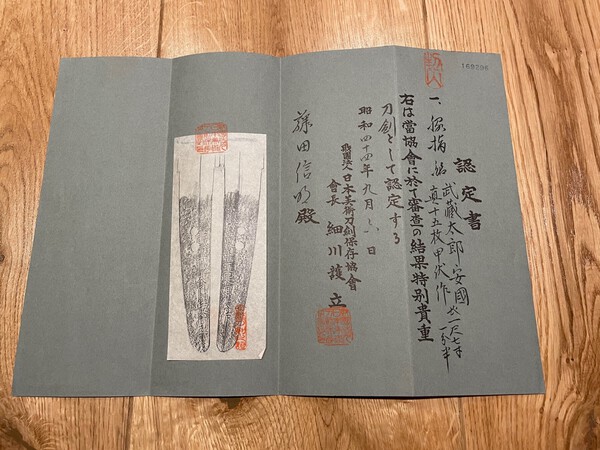 169206
認定書
一、脇指 銘 武蔵太郎安國
真十五枚甲伏作
長一尺七寸一分半
右は當協會に於て審査の結果特別貴重
刀剣として認定する
昭和四十四年九月 日
財團法人日本美術刀剣保存協會
會長 細川護立
藤田信明殿